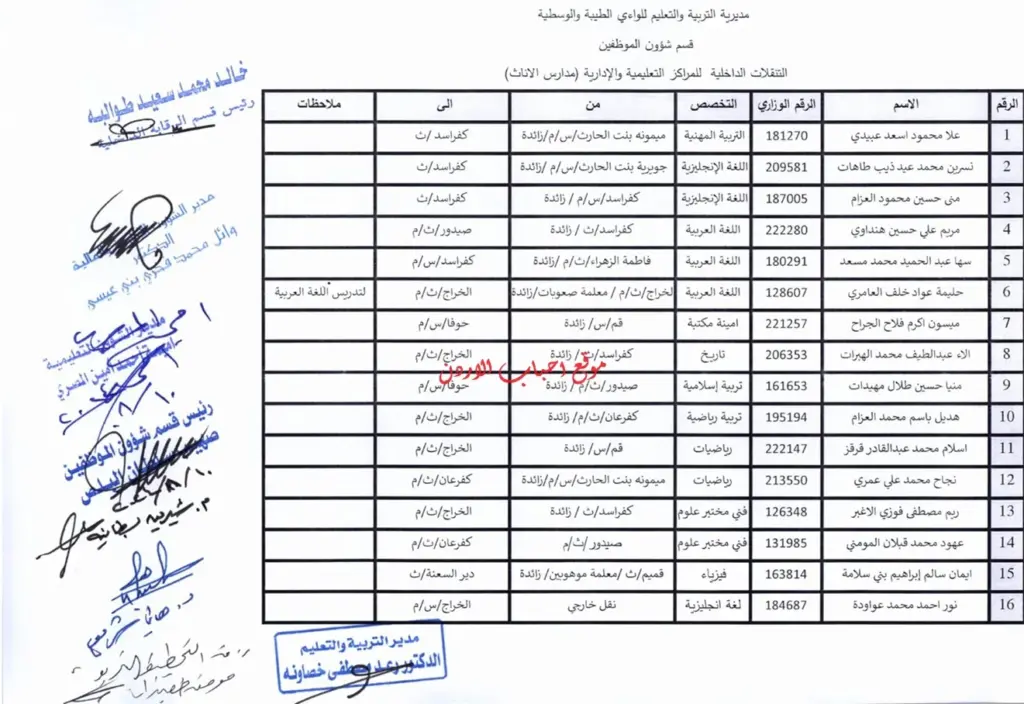 مديرية التربية والتعليم للواءي الطيبة والوسطية
قسم شؤون الموظفين
التنقلات الداخلية للمراكز التعليمية والإدارية (مدارس الاناث)
الرقم الاسم الرقم الوزاري التخصص من الى ملاحظات
1 علا محمود اسعد عبيدي 181270 التربية المهنية ميمونه بنت الحارث/س/م/زائدة كفراسد/ث
2 نسرين محمد عيد ذيب طاهات 209581 اللغة الإنجليزية جويرية بنت الحارث/س/م /زائدة كفراسد/ث
3 منى حسين محمود العزام 187005 اللغة الإنجليزية كفراسد/س/م / زائدة كفراسد/ث
4 مريم علي حسين هنداوي 222280 اللغة العربية كفراسد/ث / زائدة صيدور/ث/م
5 سها عبد الحميد محمد مسعد 180291 اللغة العربية فاطمة الزهراء/ث/م /زائدة كفراسد/س/م
6 حليمة عواد خلف العامري 128607 اللغة العربية الخراج/ث/م / معلمة صعوبات/زائدة الخراج/ث/م لتدريس اللغة العربية
7 ميسون اكرم فلاح الجراح 221257 امينة مكتبة قم/س/ زائدة حوفا/س/م
8 الاء عبدالطيف محمد الهيرات 206353 تاريخ كفراسد/ث/ زائدة الخراج/ث/م
9 منيا حسين طلال مهيدات 161653 تربية إسلامية صيدور/ث/م / زائدة حوفا/س/م
10 هديل باسم محمد العزام 195194 تربية رياضية كفرعان/ث/م/ زائدة الخراج/ث/م
11 اسلام محمد عبدالقادر قرقز 222147 رياضيات قم/س/ زائدة الخراج/ث/م
12 نجاح محمد علي عمري 213550 رياضيات ميمونه بنت الحارث/س/م/زائدة كفرعان/ث/م
13 ريم مصطفى فوزي الاغبر 126348 فني مختبر علوم كفراسد/ث / زائدة الخراج/ث/م
14 عهود محمد قبلان المومني 131985 فني مختبر علوم صيدور/ث/م كفرعان/ث/م
15 ايمان سالم إبراهيم بني سلامة 163814 فيزياء قميم/ث /معلمة موهوبين/ زائدة دير السعنة/ث
16 نور احمد محمد عواودة 184687 لغة انجليزية نقل خارجي الخراج/س/م
موقع احباب الاردن
خالد محمد سعيد طوالبه
رئيس قسم الرقابة الداخلية
مدير الشؤون
وائل محمد فخري بني عيسى
مدير الشؤون التعليمية
رئيس قسم شؤون الموظفين
مدير التربية والتعليم
الدكتور رعد مصطفى خصاونه